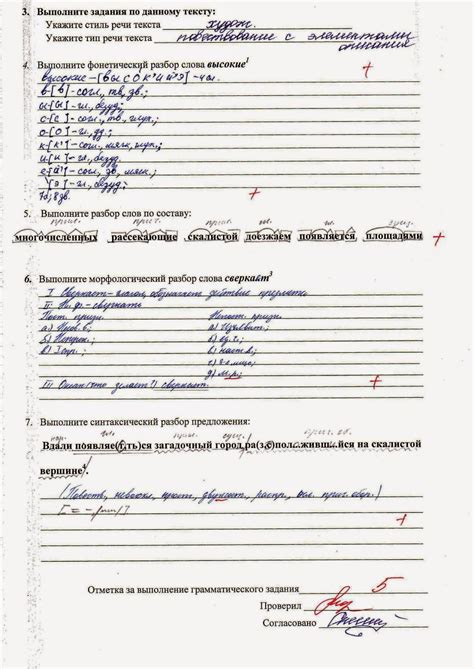 3. Выполните задания по данному тексту:
Укажите стиль речи текста худож.
Укажите тип речи текста повествование с элементами
описания
4. Выполните фонетический разбор слова высокие¹
высокие – [высок'ий'э] – 4 сл.
в – [в] – согл., тв., зв.;
ы – [ы] – гл., безуд.;
с – [с] – согл., тв., глух.;
о – [о] – гл., уд.;
к – [к'] – согл., мягк., глух.;
и – [и] – гл., безуд.
е – [й'] – согл., зв., мягк.;
[э] – гл., безуд;
7б; 8зв.
5. Выполните разбор слов по составу:
прил. прич. прил. гл. гл. сущ.
многочисленных рассекающие скалистой доезжаем появляется, площадями
6. Выполните морфологический разбор слова сверкает³
I Сверкает – глагол, обозначает действие предмета
II Н.ф. – сверкать
Пост. призн. Непост. призн.
а) Несов. в; а) Изъявит.;
б) Непрех.; б) ед.ч.;
в) I спр.; в) наст.в;
г) 3-е лицо;
III Она (что делает?) сверкает.
7. Выполните синтаксический разбор предложения:
нар. гл. прил. сущ. прич. об.
Вдали появляе(т,ть)ся загадочный город,ра(з,с)положивш..йся на скалистой
вершине⁴.
(Повеств., невоскл., прост., двусост., распр., осл. прич. обор.)
Отметка за выполнение грамматического задания 5
Проверил
Согласовано